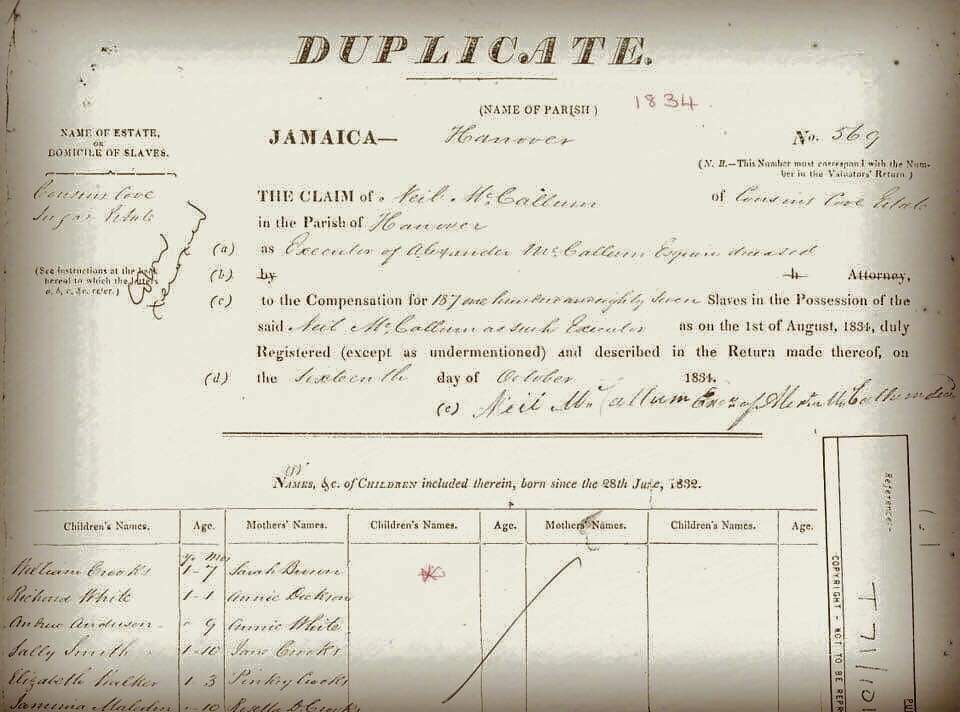 DUPLICATE.
(NAME OF PARISH)
1834.
NAME OF ESTATE,
OR
DOMICILE OF SLAVES.
JAMAICA— Hanover
No. 569
(N. B.—This Number must correspond with the Num-
ber in the Valuators' Return.)
Cousins Cove
Sugar Estate
THE CLAIM of Neil McCallum of Cousins Cove Estate
in the Parish of Hanover
(a) as Executor of Alexander McCallum Esquire deceased
(See instructions at the back
hereof to which the letters
a, b, c, &c. refer.)
(b) by h Attorney,
(c) to the Compensation for 187 one hundred and eighty seven Slaves in the Possession of the
said Neil McCallum as such Executor as on the 1st of August, 1834, duly
Registered (except as undermentioned) and described in the Return made thereof, on
(d) the Sixteenth day of October 1834.
(e) Neil McCallum Exor of Alexr McCallum
NAMES, &c. of CHILDREN included therein, born since the 28th June, 1832.
Children's Names. Age. Mothers' Names. Children's Names. Age. Mothers' Names. Children's Names. Age.
Yr Mos
William Crooks 1-7 Sarah Brown
Richard White 1-1 Annie Dickson
Anderson 9 Annie White
Sally Smith 1-10 Jane Crooks
Elizabeth Walker 1 3 Pinkey Crooks
10 Crooks
Reference:-
COPYRIGHT - NOT TO BE REPR
T 71/101